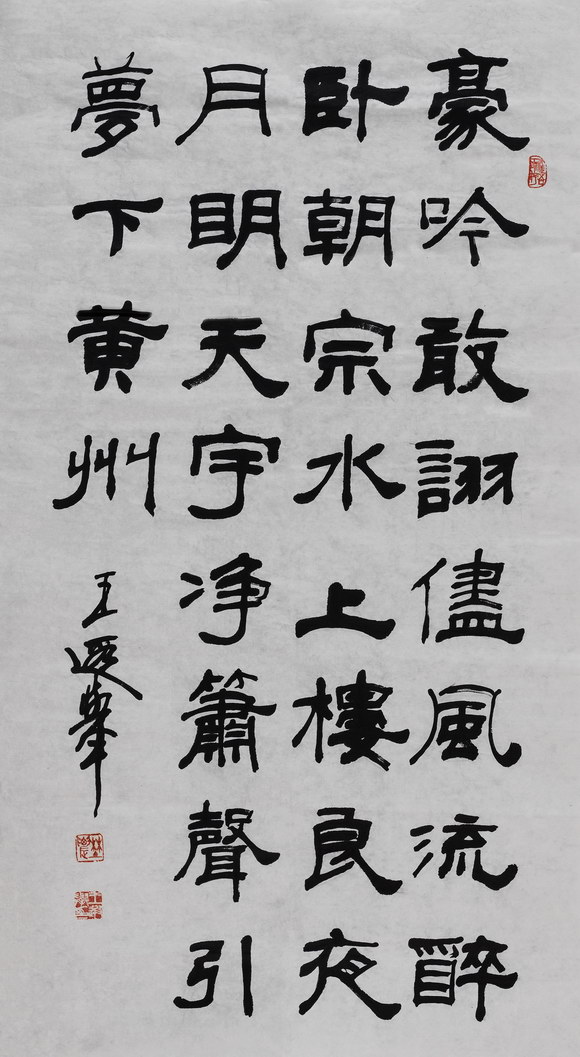 豪吟敢詡儘風流醉
卧朝宗水上樓良夜
月明天宇净簫聲引
夢下黄州
王遐舉